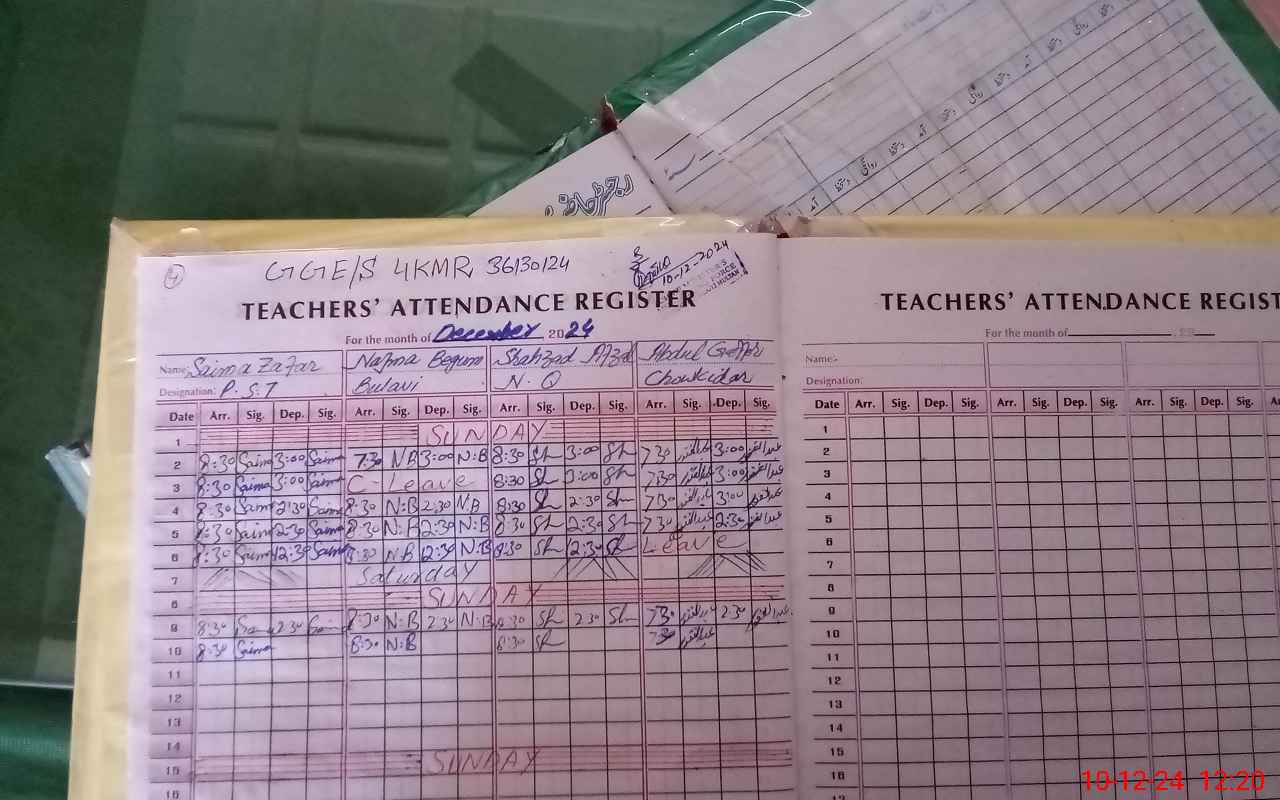 4
GGE/S 4KMR 36130124
10-12-2024
TEACHERS' ATTENDANCE REGISTER
For the month of December 2024
Name:- Saima Zafar Nazma Begum Shahzad Afzal Abdul Gaffar
Designation: P.S.T Bulavi N.Q Chowkidar
Date Arr. Sig. Dep. Sig. Arr. Sig. Dep. Sig. Arr. Sig. Dep. Sig. Arr. Sig. Dep. Sig.
1 SUNDAY
2 8:30 Saima 3:00 Saima 7:30 N.B 3:00 N:B 8:30 Sh 3:00 Sh 7:30 عبدالغفور 3:00 عبدالغفور
3 8:30 Saima 3:00 Saima C-Leave 8:30 Sh 3:00 Sh 7:30 عبدالغفور 3:00 عبدالغفور
4 8:30 Saima 2:30 Saima 8:30 N:B 2:30 N.B 8:30 Sh 2:30 Sh 7:30 عبدالغفور 3:00 عبدالغفور
5 8:30 Saima 2:30 Saima 8:30 N:B 2:30 N:B 8:30 Sh 2:30 Sh 7:30 عبدالغفور 2:30 عبدالغفور
6 8:30 Saima 12:30 Saima 8:30 N.B 12:30 N:B 8:30 Sh 12:30 Sh Leave
7 Saturday
8 SUNDAY
9 8:30 Saima 2:30 Saima 8:30 N:B 2:30 N:B 8:30 Sh 2:30 Sh 7:30 عبدالغفور 2:30 عبدالغفور
10 8:30 Saima 8:30 N:B 8:30 Sh 7:30 عبدالغفور
11
12
13
14
15 SUNDAY
16
TEACHERS' ATTENDANCE REGIST
For the month of 20
Name:-
Designation:
Date Arr. Sig. Dep. Sig. Arr. Sig. Dep. Sig. Arr. Sig. Dep. Sig.
1
2
3
4
5
6
7
8
9
10
11
12
13
14
15
16
10-12-24 12:20